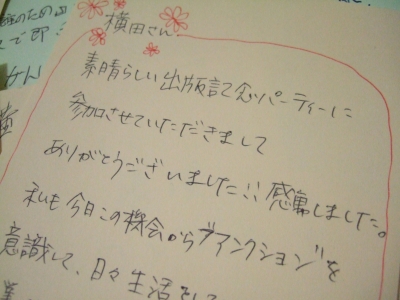 横田さん
素晴らしい出版記念パーティーに
参加させていただきまして
ありがとうございました!! 感動しました。
私も今日この機会から"アンクション"を
意識して、日々生活をして